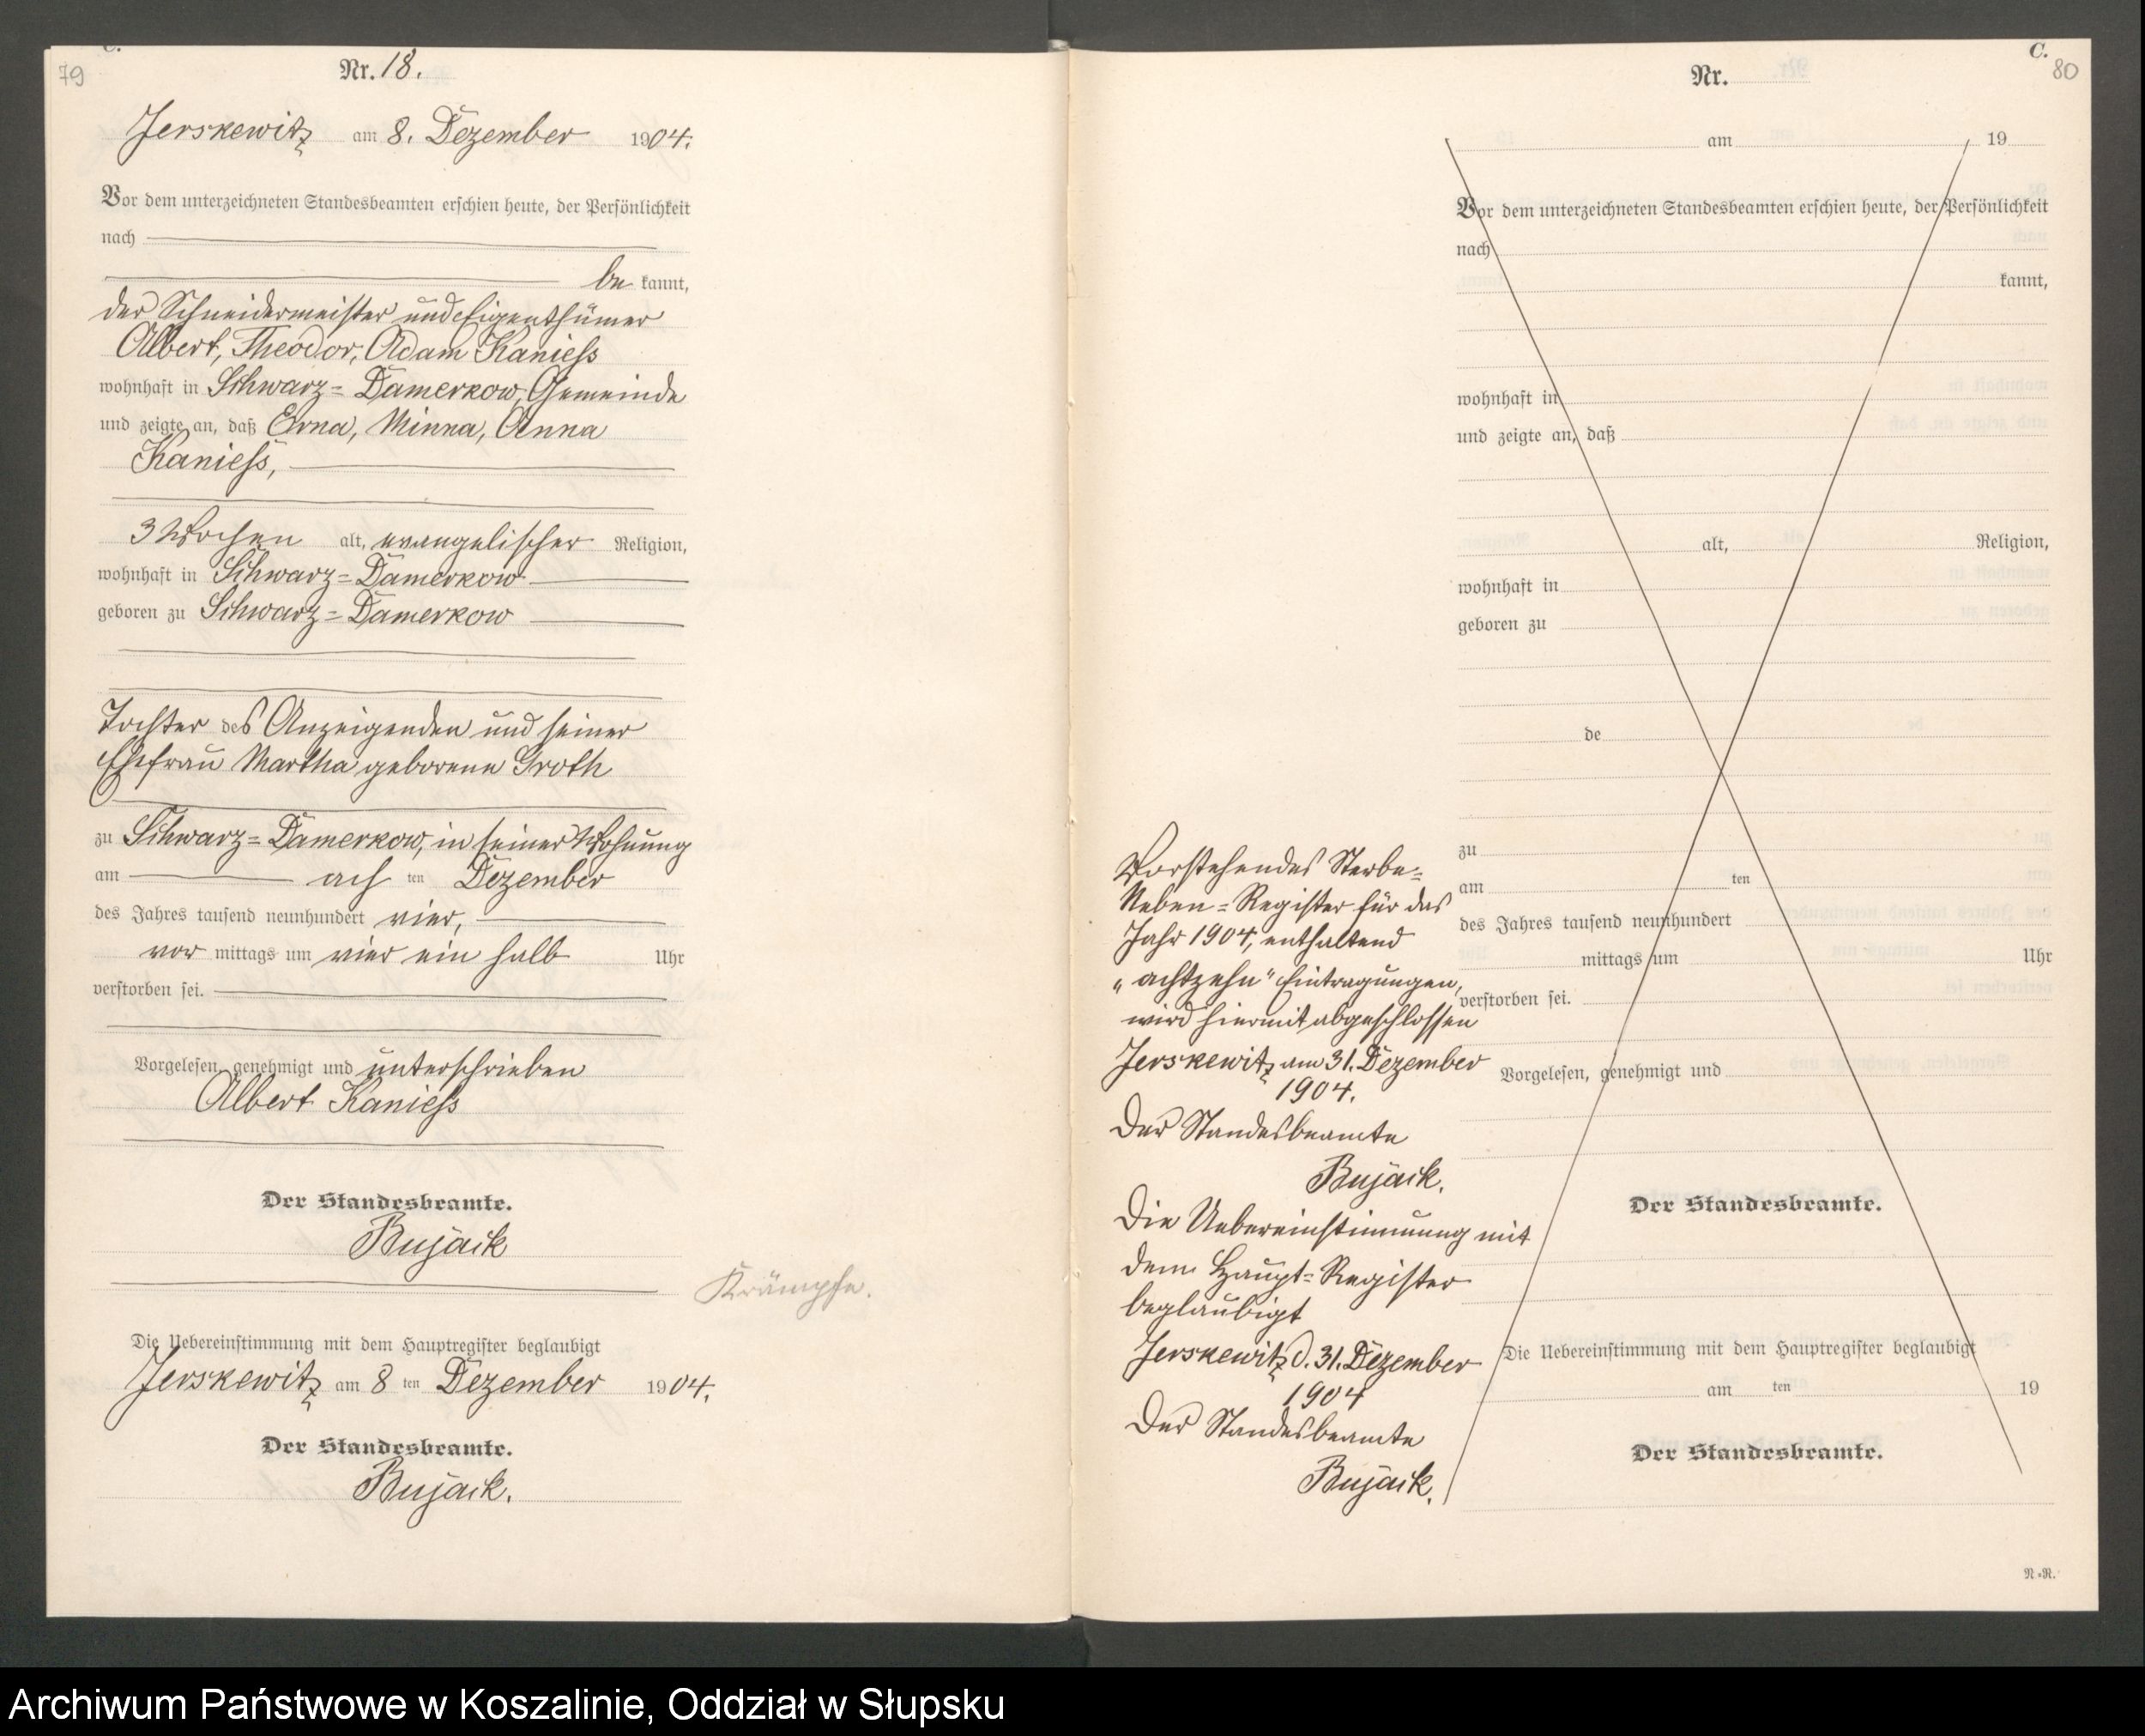 79
C.
Nr. 18.
Jerskewitz am 8. Dezember 1904.
Vor dem unterzeichneten Standesbeamten erschien heute, der Persönlichkeit
nach
be kannt,
der Schneidermeister und Eigenthümer
Albert, Theodor, Adam Kanieß
wohnhaft in Schwarz=Damerkow, Gemeinde
und zeigte an, daß Erna, Minna, Anna
Kanieß,
3 Wochen alt, evangelischer Religion,
wohnhaft in Schwarz=Damerkow
geboren zu Schwarz=Damerkow
Tochter des Anzeigenden und seiner
Ehefrau Martha geborene Groth
zu Schwarz=Damerkow, in seiner Wohnung
am ach ten Dezember
des Jahres tausend neunhundert vier,
vor mittags um vier ein halb Uhr
verstorben sei.
Vorgelesen, genehmigt und unterschrieben
Albert Kanieß
Der Standesbeamte.
Bujack
Krämpfe.
Die Uebereinstimmung mit dem Hauptregister beglaubigt
Jerskewitz am 8 ten Dezember 1904.
Der Standesbeamte.
Bujack.
C.
80
Nr.
am 19
Vor dem unterzeichneten Standesbeamten erschien heute, der Persönlichkeit
nach
kannt,
wohnhaft in
und zeigte an, daß
alt, Religion,
wohnhaft in
geboren zu
de
zu
am ten
des Jahres tausend neunhundert
mittags um Uhr
verstorben sei.
Vorgelesen, genehmigt und
Der Standesbeamte.
Die Uebereinstimmung mit dem Hauptregister beglaubigt
am ten 19
Der Standesbeamte.
N.=R.
Vorstehendes Sterbe=
Neben=Register für das
Jahr 1904, enthaltend
„achtzehn" Eintragungen,
wird hiermit abgeschlossen
Jerskewitz am 31. Dezember
1904.
Der Standesbeamte
Bujack.
Die Uebereinstimmung mit
dem Haupt=Register
beglaubigt
Jerskewitz d. 31. Dezember
1904
Der Standesbeamte
Bujack.
Archiwum Państwowe w Koszalinie, Oddział w Słupsku